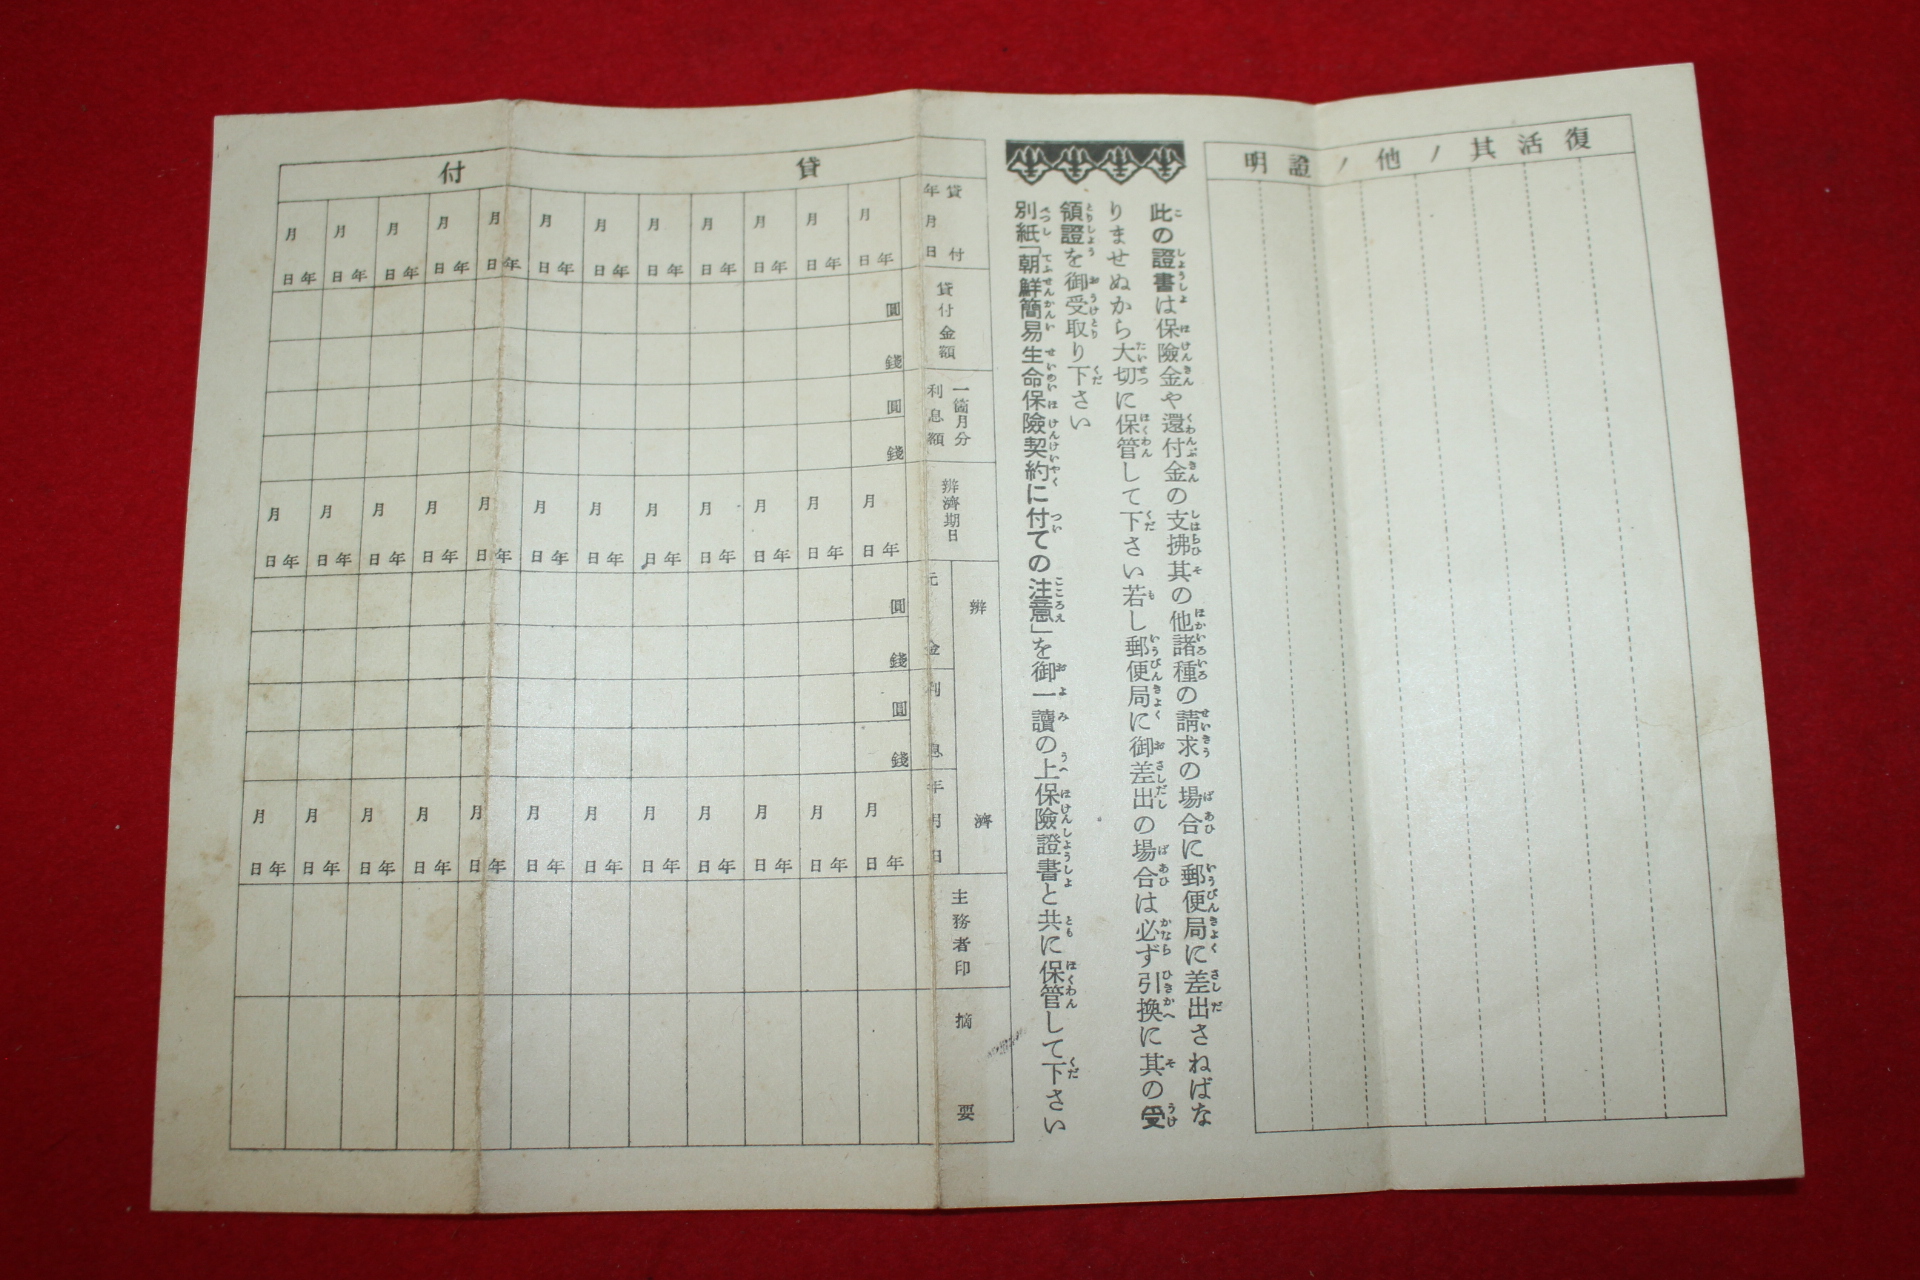 復活其ノ他ノ證明
此の證書は保險金や還付金の支拂其の他諸種の請求の場合に郵便局に差出さねばな
りませぬから大切に保管して下さい若し郵便局に御差出の場合は必ず引換に其の受
領證を御受取り下さい
別紙「朝鮮簡易生命保險契約に付ての注意」を御一讀の上保險證書と共に保管して下さい
貸付
貸付年月日
貸付金額
一箇月分利息額
辨濟期日
辨濟
元金
利息
年月日
主務者印
摘要
年月日 年月日 年月日 年月日 年月日 年月日 年月日 年月日 年月日 年月日 年月日 年月日
圓
錢
圓
錢
年月日 年月日 年月日 年月日 年月日 年月日 年月日 年月日 年月日 年月日 年月日 年月日
圓
錢
圓
錢
年月日 年月日 年月日 年月日 年月日 年月日 年月日 年月日 年月日 年月日 年月日 年月日